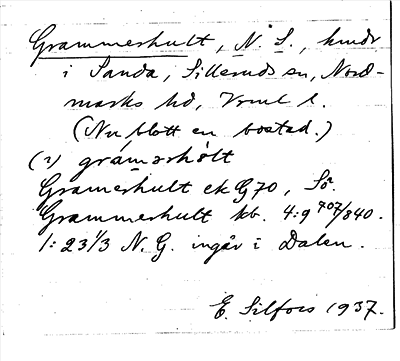 Grammerhult, N. S., hmdr
i Sanda, Silleruds sn, Nord-
marks hd, Vrml l.
(Nu blott en bostad.)
(2) gràmərhólt
Gramerhult ek G70, Sö.
Grammerhult kb. 4:9 707/840.
1:23 1/3 N. G. ingår i Dalen.
E. Silfors 1937.